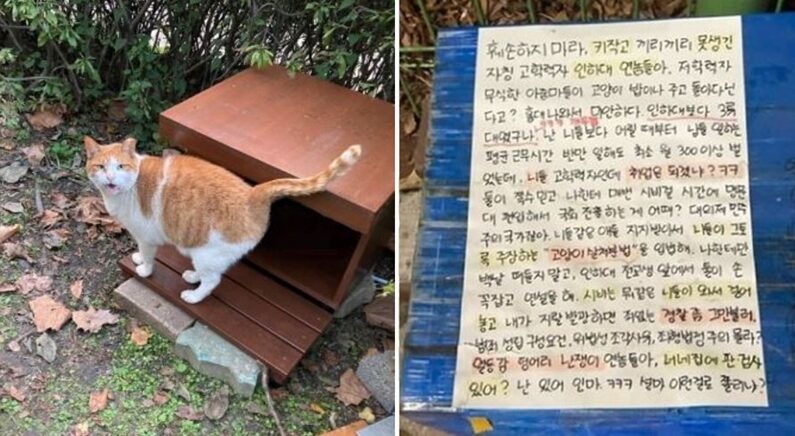 훼손하지 마라, 키작고 끼리끼리 못생긴
자칭 고학력자 인하대 연놈들아. 저학력자
무식한 아줌마들이 고양이 밥이나 주고 돌아다닌
다고? 홍대나와서 미안하다. 인하대보다 3류
대였구나? 난 니들보다 어릴 때부터 남들 일하는
평균 근무시간 반만 일해도 최소 월 300이상 벌
었는데, 니들 고학력자인데 취업은 되겠냐? ㅋㅋ
둘이 짝수 믿고 나한테 매번 시비걸 시간에 명문
대 편입해서 국회 진출하는게 어때? 대의제 민주
주의 국가잖아. 니들같은 애들 지지받아서 니들이 그토
록 주장하는 "고양이 살처분법"을 입법해. 나한테만
백날 떠들지 말고, 인하대 전교생 앞에서 둘이 손
꼭잡고 연설을 해. 시비는 뭐같은 니들이 와서 걸어
놓고 내가 지랄 발광하면 죄없는 경찰 좀 그만불러,
범죄 성립 구성요건, 위법성 조각사유, 죄형법정주의 몰라?
열등감 덩어리 난쟁이 연놈들아, 너네집에 판검사
있어? 난 있어 인마. ㅋㅋㅋ 설마 이런걸로 쫄리나?